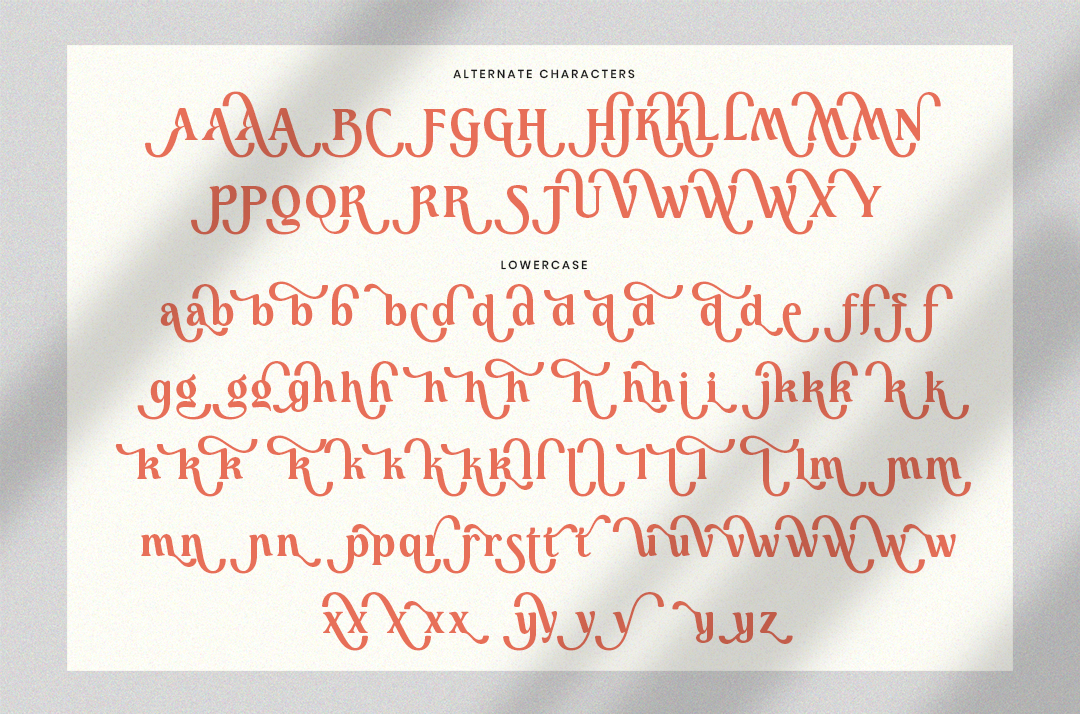 ALTERNATE CHARACTERS
AAAA BC FGGH HJKKLLMMMN
PPQOR RR STUVWWWXY
LOWERCASE
aabbbb bcddddddd de ffff
gg gg ghhh hhh h hhii jkkk kk
kkk kkkkkkllllll l llm mm
mn nn ppqrrrsttt uuvvwwwww
xxxxx yyyy yyz